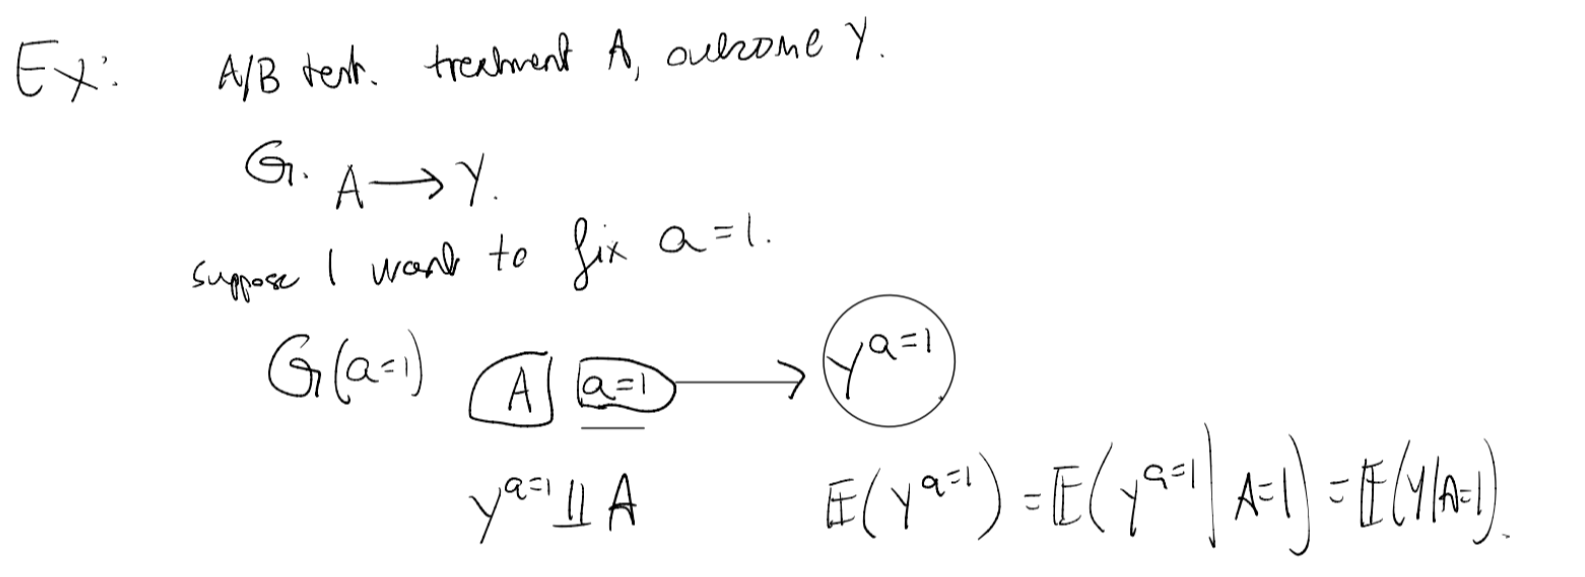 Ex: A/B test. treatment A, outcome Y.
G. A → Y.
suppose I want to fix a=1.
G(a=1) A a=1 → Y^{a=1}
Y^{a=1} ⫫ A E(Y^{a=1}) = E(Y^{a=1} | A=1) = E(Y|A=1).